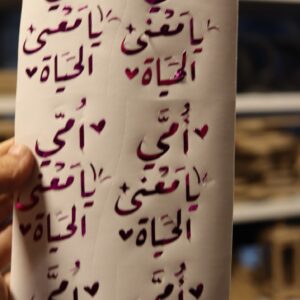 يا مَعْنى
الحَيَاة
أُمّي
يا مَعْنى
الحَيَاة
أُمّي
يا مَعْنى
الحَيَاة
أُمّي
يا مَعْنى
الحَيَاة
أُمّي